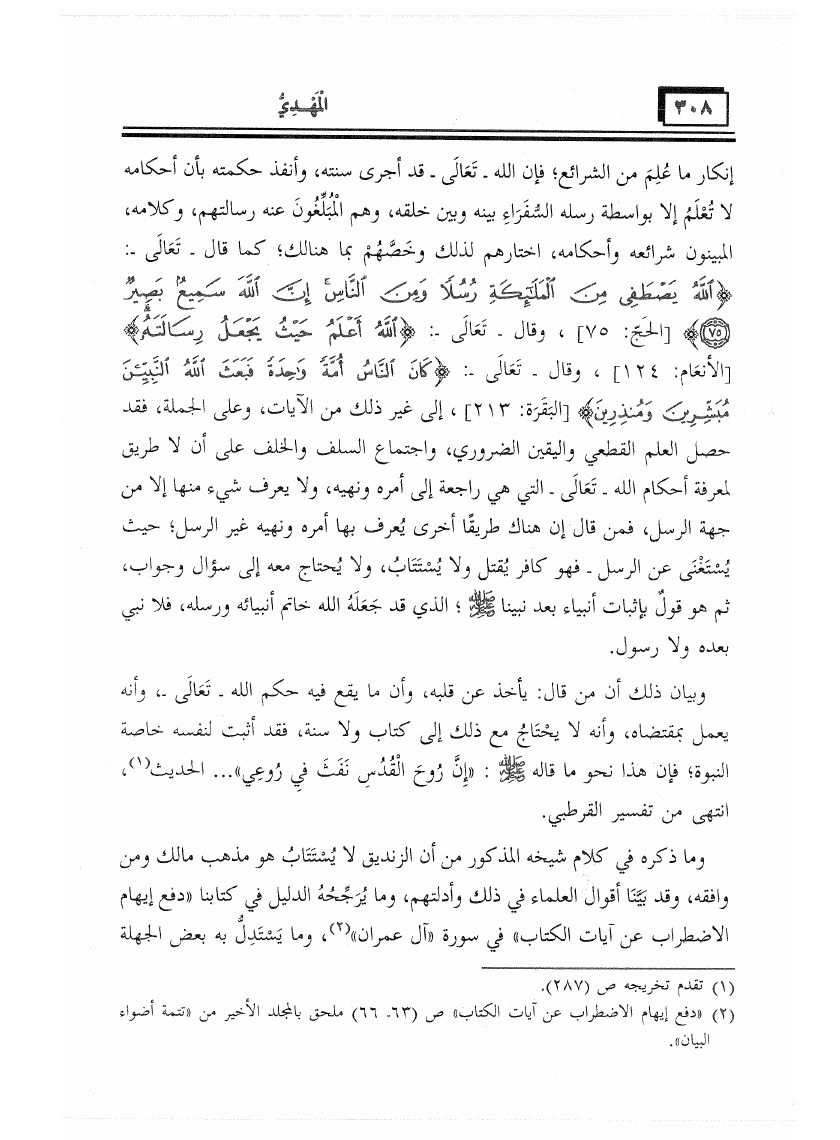 ٣٠٨
الْمَهْدِيُّ
إنكار ما عُلِمَ من الشرائع؛ فإن الله ـ تَعَالَى ـ قد أجرى سنته، وأنفذ حكمته بأن أحكامه
لا تُعْلَمُ إلا بواسطة رسله السُّفَرَاءِ بينه وبين خلقه، وهم الْمُبَلِّغُونَ عنه رسالتهم، وكلامه،
المبينون شرائعه وأحكامه، اختارهم لذلك وخَصَّهُمْ بما هنالك؛ كما قال ـ تَعَالَى ـ:
﴿ٱللَّهُ يَصْطَفِى مِنَ ٱلْمَلَٰٓئِكَةِ رُسُلًا وَمِنَ ٱلنَّاسِ ۚ إِنَّ ٱللَّهَ سَمِيعٌۢ بَصِيرٌ
٧٥﴾ [الحَجّ: ٧٥] ، وقال ـ تَعَالَى ـ: ﴿ٱللَّهُ أَعْلَمُ حَيْثُ يَجْعَلُ رِسَالَتَهُۥ﴾
[الأنعَام: ١٢٤] ، وقال ـ تَعَالَى ـ: ﴿كَانَ ٱلنَّاسُ أُمَّةً وَٰحِدَةً فَبَعَثَ ٱللَّهُ ٱلنَّبِيِّـۧنَ
مُبَشِّرِينَ وَمُنذِرِينَ﴾ [البَقَرَة: ٢١٣] ، إلى غير ذلك من الآيات، وعلى الجملة، فقد
حصل العلم القطعي واليقين الضروري، واجتماع السلف والخلف على أن لا طريق
لمعرفة أحكام الله ـ تَعَالَى ـ التي هي راجعة إلى أمره ونهيه، ولا يعرف شيء منها إلا من
جهة الرسل، فمن قال إن هناك طريقًا أخرى يُعرف بها أمره ونهيه غير الرسل؛ حيث
يُسْتَغْنَى عن الرسل ـ فهو كافر يُقتل ولا يُسْتَتَابُ، ولا يُحتاج معه إلى سؤال وجواب،
ثم هو قولٌ بإثبات أنبياء بعد نبينا ﷺ ؛ الذي قد جَعَلَهُ الله خاتم أنبيائه ورسله، فلا نبي
بعده ولا رسول.
وبيان ذلك أن من قال: يأخذ عن قلبه، وأن ما يقع فيه حكم الله ـ تَعَالَى ـ، وأنه
يعمل بمقتضاه، وأنه لا يحْتَاجُ مع ذلك إلى كتاب ولا سنة، فقد أثبت لنفسه خاصة
النبوة؛ فإن هذا نحو ما قاله ﷺ : «إِنَّ رُوحَ الْقُدُسِ نَفَثَ فِي رُوعِي»... الحديث(١)،
انتهى من تفسير القرطبي.
وما ذكره في كلام شيخه المذكور من أن الزنديق لا يُسْتَتَابُ هو مذهب مالك ومن
وافقه، وقد بَيَّنَا أقوال العلماء في ذلك وأدلتهم، وما يُرَجِّحُهُ الدليل في كتابنا «دفع إيهام
الاضطراب عن آيات الكتاب» في سورة «آل عمران»(٢)، وما يَسْتَدِلُّ به بعض الجهلة
(١) تقدم تخريجه ص (٢٨٧).
(٢) «دفع إيهام الاضطراب عن آيات الكتاب» ص (٦٣ـ ٦٦) ملحق بالمجلد الأخير من «تتمة أضواء
البيان».